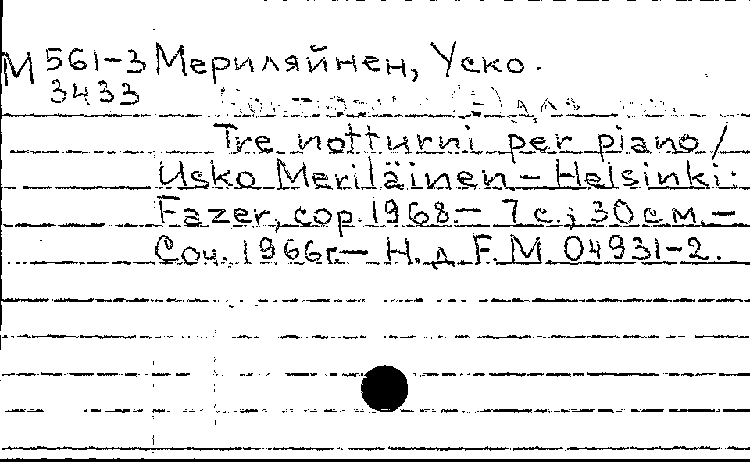 М 561-3 Мериляйнен, Уско.
3433
Tre notturni per piano /
Usko Meriläinen - Helsinki:
Fazer, cop. 1968. - 7 с.; 30 см. -
Соч. 1966г. - Н. д. F. M. 04931-2.